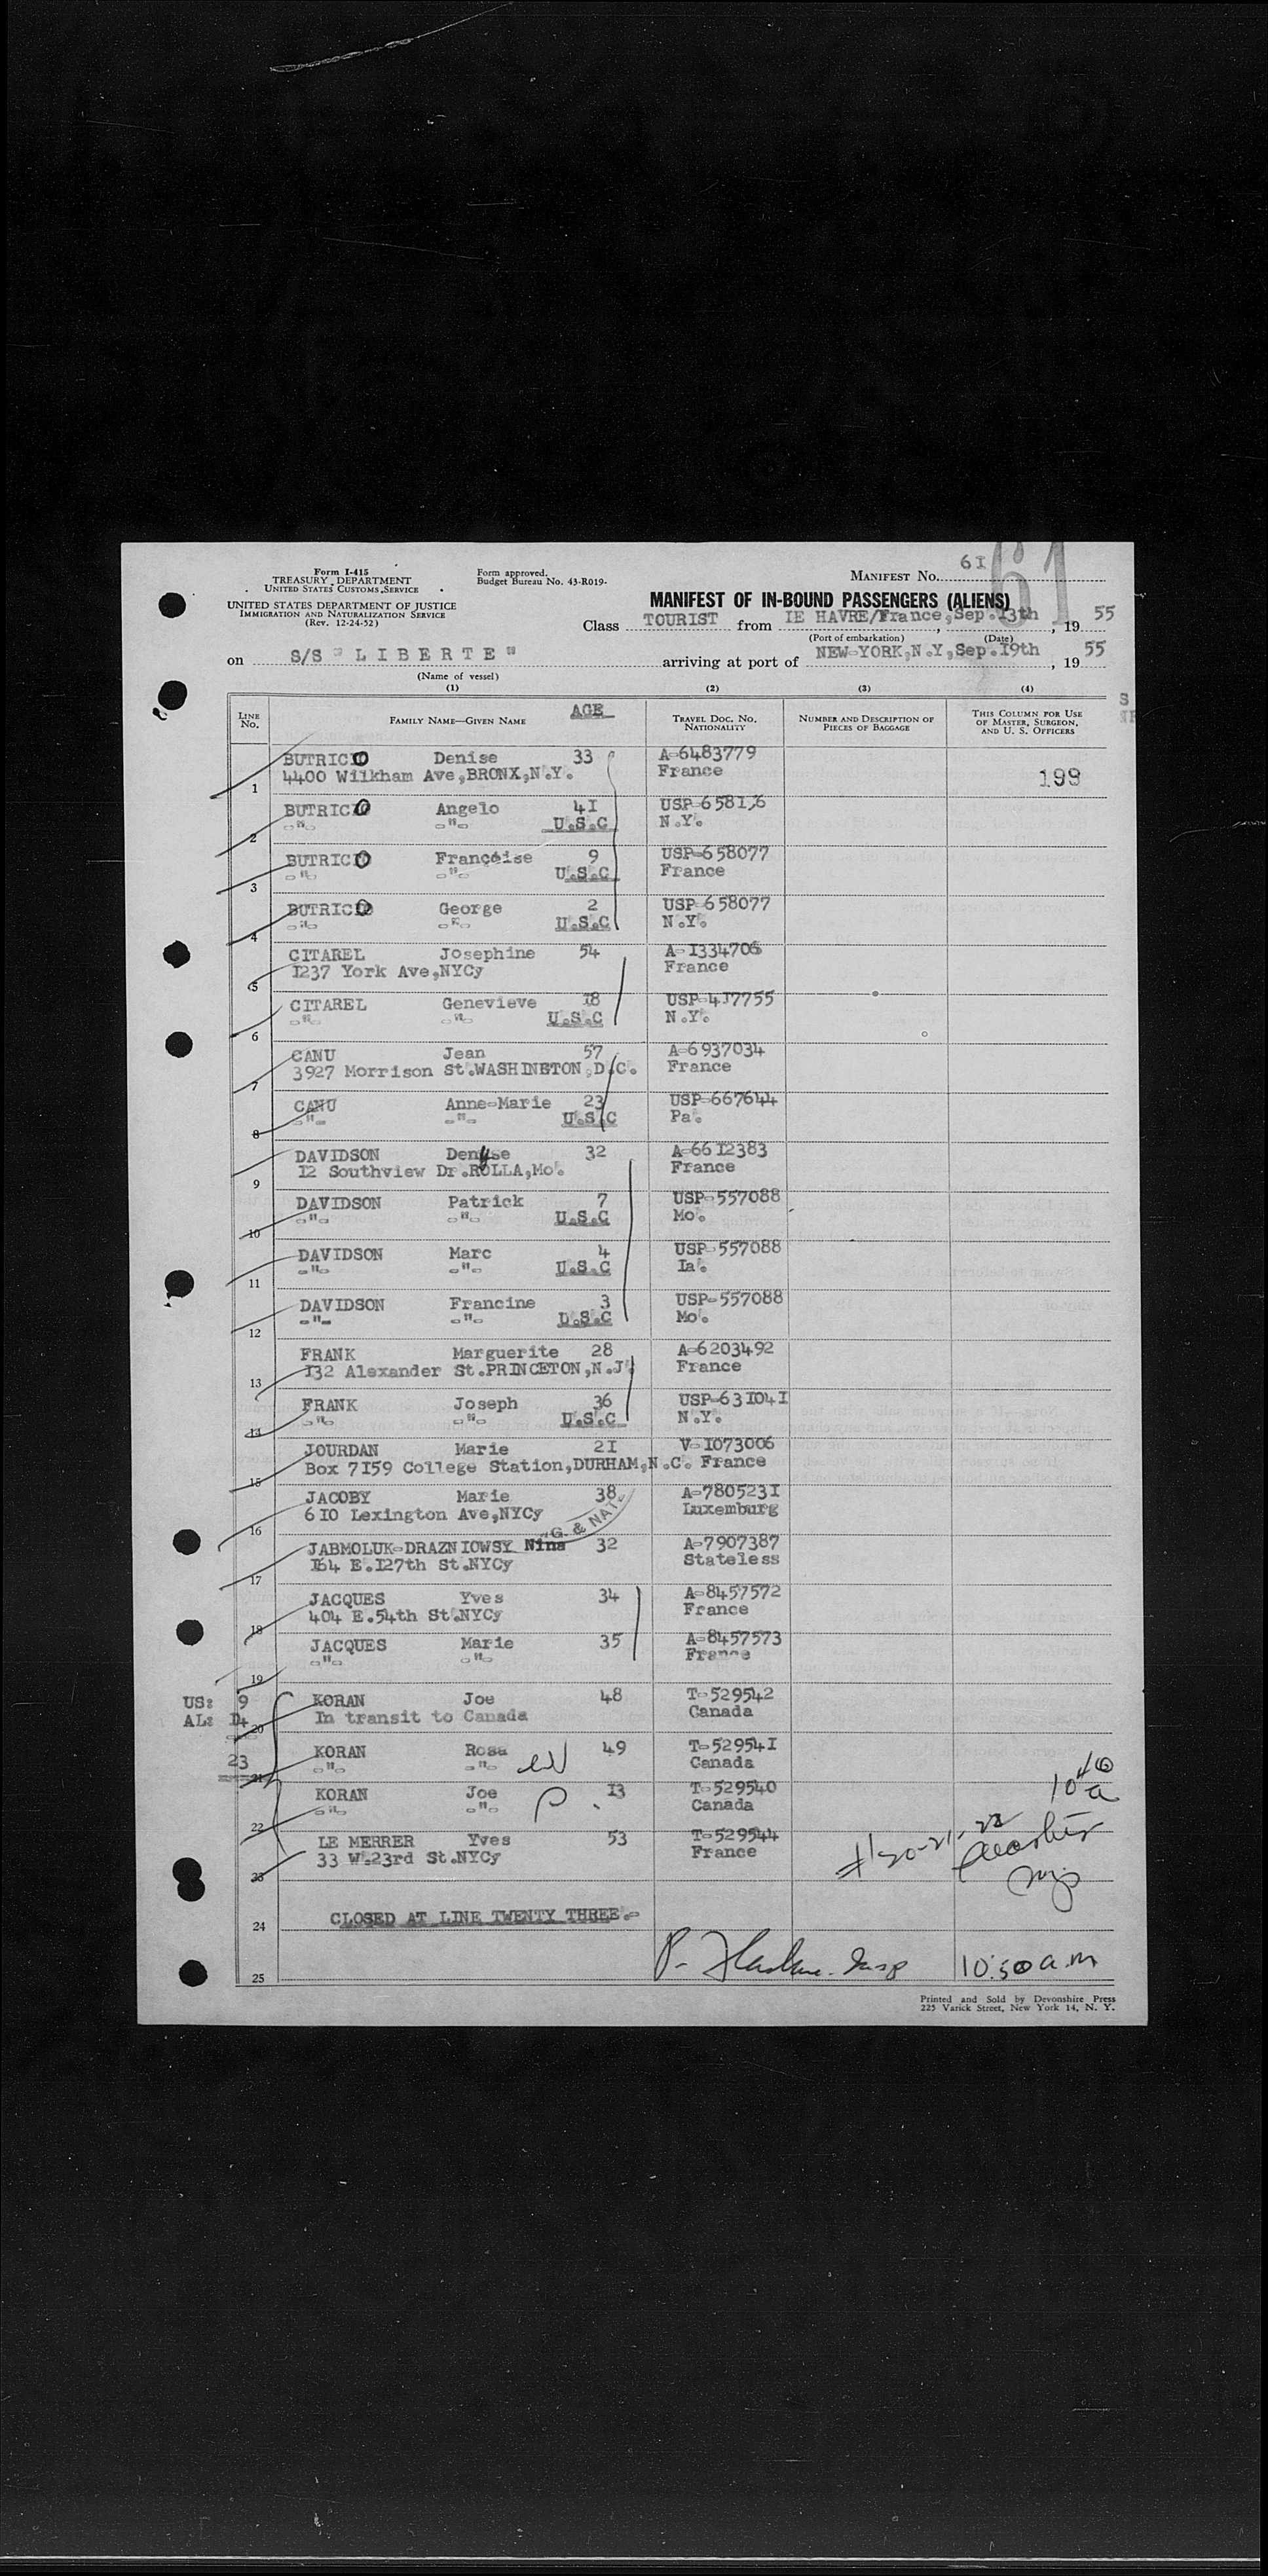 Form I-415
TREASURY DEPARTMENT
UNITED STATES CUSTOMS SERVICE
UNITED STATES DEPARTMENT OF JUSTICE
IMMIGRATION AND NATURALIZATION SERVICE
(Rev. 12-24-52)
Form approved.
Budget Bureau No. 43-R019-
MANIFEST NO. 61
61
MANIFEST OF IN-BOUND PASSENGERS (ALIENS)
Class TOURIST from IE HAVRE/France, Sep.13th, 19 55
(Port of embarkation) (Date)
on S/S "LIBERTE" arriving at port of NEW-YORK,N.Y,Sep.19th, 19 55
(Name of vessel)
(1) (2) (3) (4)
LINE NO. FAMILY NAME—GIVEN NAME AGE TRAVEL DOC. NO. NATIONALITY NUMBER AND DESCRIPTION OF PIECES OF BAGGAGE THIS COLUMN FOR USE OF MASTER, SURGEON, AND U. S. OFFICERS
1 BUTRICO Denise 33 A-6483779
4400 Wilkham Ave,BRONX,N.Y. France 199
2 BUTRICO Angelo 41
-"- -"- U.S.C N.Y.
3 BUTRICO Françoise 9 USP-658077
-"- -"- U.S.C France
4 BUTRICO George 2 USP-658077
-"- -"- U.S.C N.Y.
5 CITAREL Josephine 54 A-1334706
1237 York Ave,NYCy France
6 CITAREL Genevieve 18 USP-417755
-"- -"- U.S.C N.Y.
7 CANU Jean 57 A-6937034
3927 Morrison St.WASHINETON,D.C. France
8 CANU Anne-Marie 23 USP-667644
-"- -"- U.S.C Pa.
9 DAVIDSON Denyse 32 A-6612383
12 Southview Dr.ROLLA,Mo. France
10 DAVIDSON Patrick 7 USP-557088
-"- -"- U.S.C Mo.
11 DAVIDSON Marc 4 USP-557088
-"- -"- U.S.C Ia.
12 DAVIDSON Francine 3 USP-557088
-"- -"- U.S.C Mo.
13 FRANK Marguerite 28 A-6203492
132 Alexander St.PRINCETON,N.J. France
14 FRANK Joseph 36 USP-631041
-"- -"- U.S.C N.Y.
15 JOURDAN Marie 21 V-1073006
Box 7159 College Station,DURHAM,N.C. France
16 JACOBY Marie 38 A-7805231
610 Lexington Ave,NYCy Luxemburg
G. & NAT
17 JABMOLUK-DRAZNIOWSY Nina 32 A-7907387
164 E.127th St.NYCy Stateless
18 JACQUES Yves 34 A-8457572
404 E.54th St.NYCy France
19 JACQUES Marie 35 A-8457573
-"- -"- France
US: 9
AL: 14
23
20 KORAN Joe 48 T-529542
In transit to Canada Canada
21 KORAN Rosa 49 T-529541
-"- -"- Canada
22 KORAN Joe 13 T-529540
-"- -"- Canada
23 LE MERRER Yves 53 T-529544
33 W.23rd St.NYCy France
10 40 a
#20-21-22
24 CLOSED AT LINE TWENTY THREE.-
25 10:50 a.m
Printed and Sold by Devonshire Press
225 Varick Street, New York 14, N. Y.